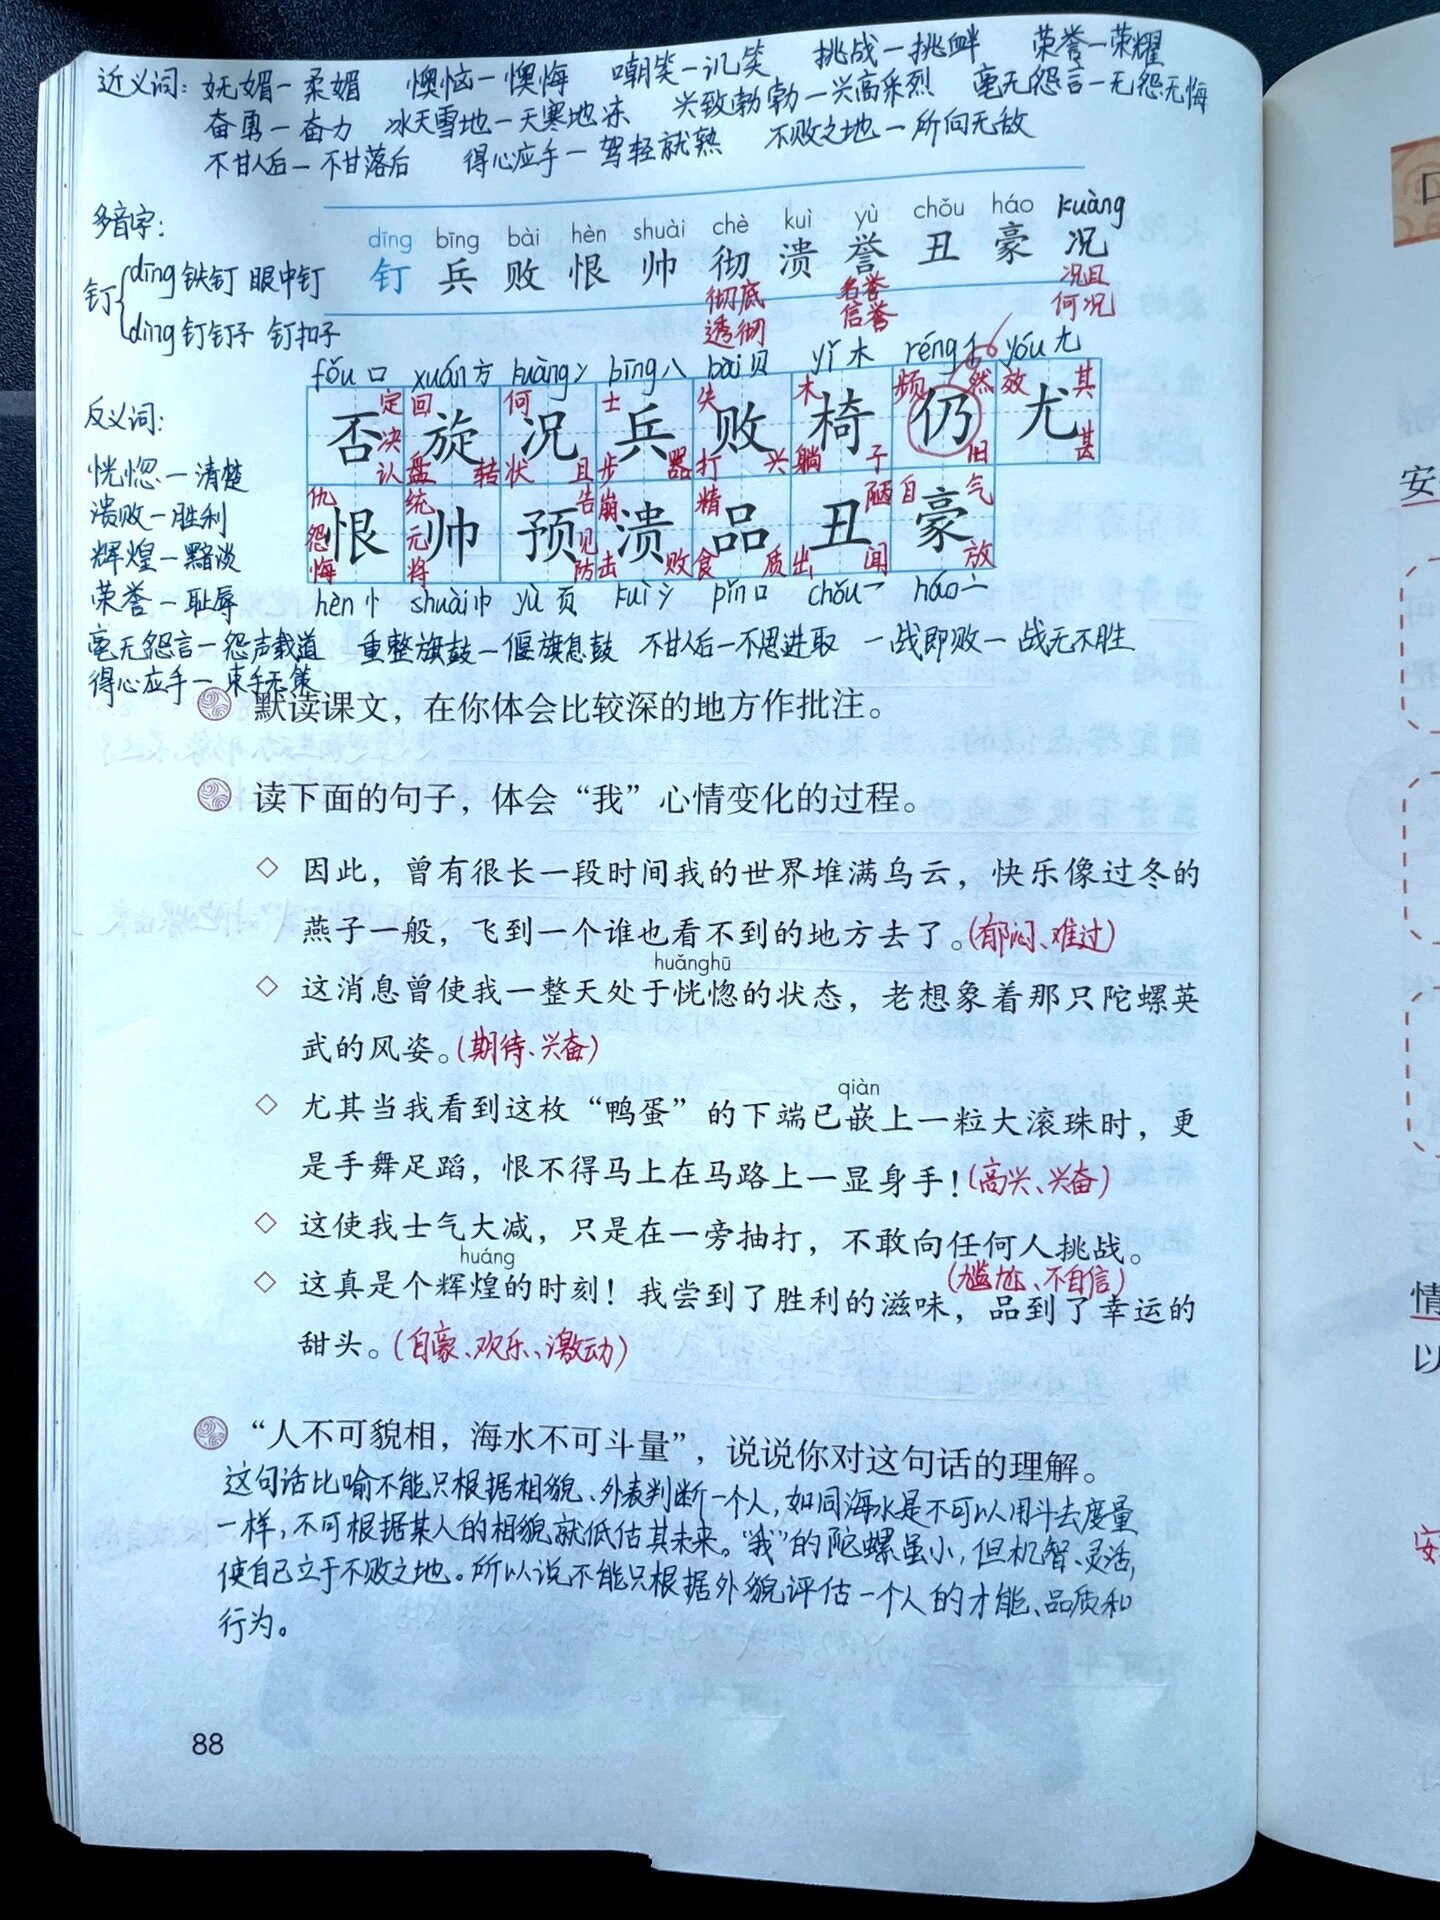 近义词：妩媚—柔媚 懊恼—懊悔 嘲笑—讥笑 挑战—挑衅 荣誉—荣耀
奋勇—奋力 冰天雪地—天寒地冻 兴致勃勃—兴高采烈 毫无怨言—无怨无悔
不甘人后—不甘落后 得心应手—驾轻就熟 不败之地—所向无敌
多音字：
钉 dīng 铁钉 眼中钉
dìng 钉钉子 钉扣子
dīng bīng bài hèn shuài chè kuì yù chǒu háo kuàng
钉 兵 败 恨 帅 彻 溃 誉 丑 豪 况
彻底 名誉 况且
透彻 信誉 何况
fǒu 口 xuán 方 kuàng 冫 bīng 八 bài 贝 yǐ 木 réng 亻 yóu 尢
定 回 何 士 失 木 频 然 效 其
否 旋 况 兵 败 椅 仍 尤
决 认 盘 转 状 且 步 器 打 兴 躺 子 旧 甚
仇 统 告 崩 精 陋 自 气
恨 帅 预 溃 品 丑 豪
怨 悔 元 将 见 防 击 败 食 质 出 闻 放
hèn 忄 shuài 巾 yù 页 kuì 氵 pǐn 口 chǒu 一 háo 亠
反义词：
恍惚—清楚
溃败—胜利
辉煌—黯淡
荣誉—耻辱
毫无怨言—怨声载道 重整旗鼓—偃旗息鼓 不甘人后—不思进取 一战即败—战无不胜
得心应手—束手无策
默读课文，在你体会比较深的地方作批注。
读下面的句子，体会“我”心情变化的过程。
◇ 因此，曾有很长一段时间我的世界堆满乌云，快乐像过冬的
燕子一般，飞到一个谁也看不到的地方去了。（郁闷、难过）
huǎnghū
◇ 这消息曾使我一整天处于恍惚的状态，老想象着那只陀螺英
武的风姿。（期待、兴奋）
qiàn
◇ 尤其当我看到这枚“鸭蛋”的下端已嵌上一粒大滚珠时，更
是手舞足蹈，恨不得马上在马路上一显身手！（高兴、兴奋）
◇ 这使我士气大减，只是在一旁抽打，不敢向任何人挑战。
（尴尬、不自信）
huáng
◇ 这真是个辉煌的时刻！我尝到了胜利的滋味，品到了幸运的
甜头。（自豪、欢乐、激动）
“人不可貌相，海水不可斗量”，说说你对这句话的理解。
这句话比喻不能只根据相貌、外表判断一个人，如同海水是不可以用斗去度量
一样，不可根据某人的相貌就低估其未来。“我”的陀螺虽小，但机智、灵活，
使自己立于不败之地。所以说不能只根据外貌评估一个人的才能、品质和
行为。
88
安
情
以
安